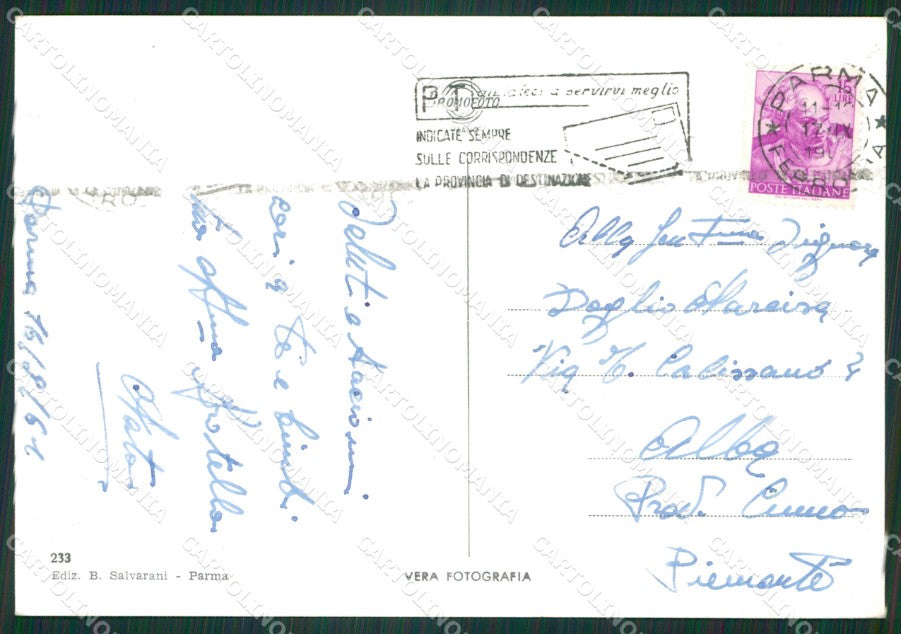 PT aiutateci a servirvi meglio
INDICATE SEMPRE
SULLE CORRISPONDENZE
LA PROVINCIA DI DESTINAZIONE
PARMA
FERROVIA
15
LIRE
POSTE ITALIANE
Parma 16/9/61
Saluti e bacioni
cari a te e bimbi
tuo aff.mo fratello
Alla Gen.Tma Signora
Doglio Narcisa
Via T. Calissano 7
Alba
Prov. Cuneo
Piemonte
233
Ediz. B. Salvarani - Parma
VERA FOTOGRAFIA
CARTOLINOMANIA